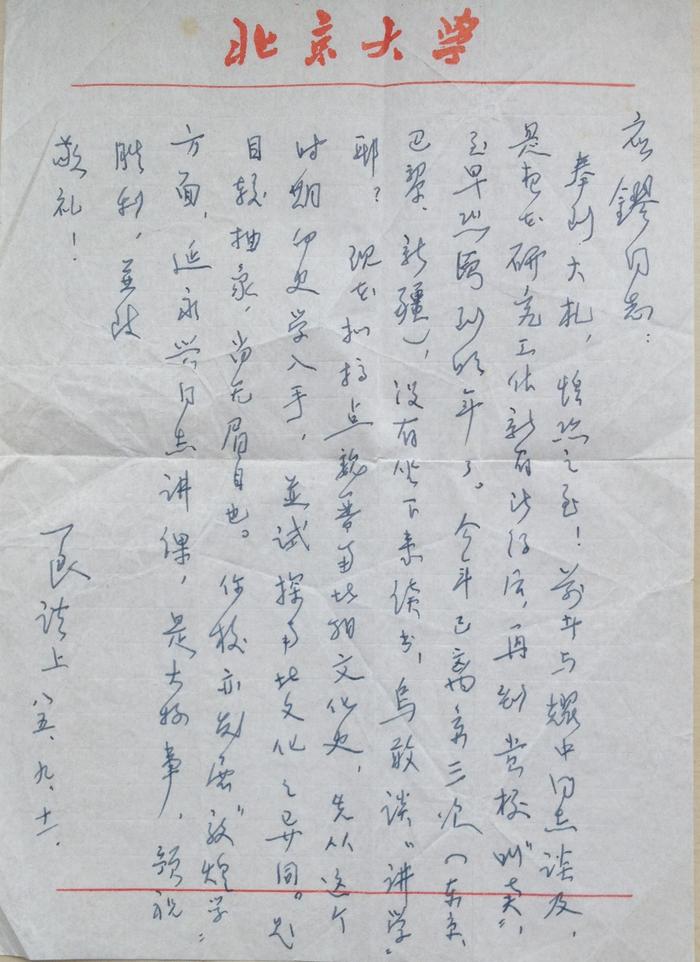 北京大学
应镠同志：
奉到大札，惶恐之至！前年与耀中同志谈及，
是想在研究工作新有所得后，再到贵校“叫卖”，
至早恐须到明年了。今年已离京三次（东京、
巴黎、新疆），没有坐下来读书，乌敢谈“讲学”
耶？现在拟搞点魏晋南北朝文化史，先从这个
时期的史学入手，并试探南北文化之异同。总
目较抽象，尚无眉目也。你校亦发展“敦煌学”
方面，延永兴同志讲课，是大好事，预祝
胜利，并致
敬礼！
一良谨上 八五、九、十一、